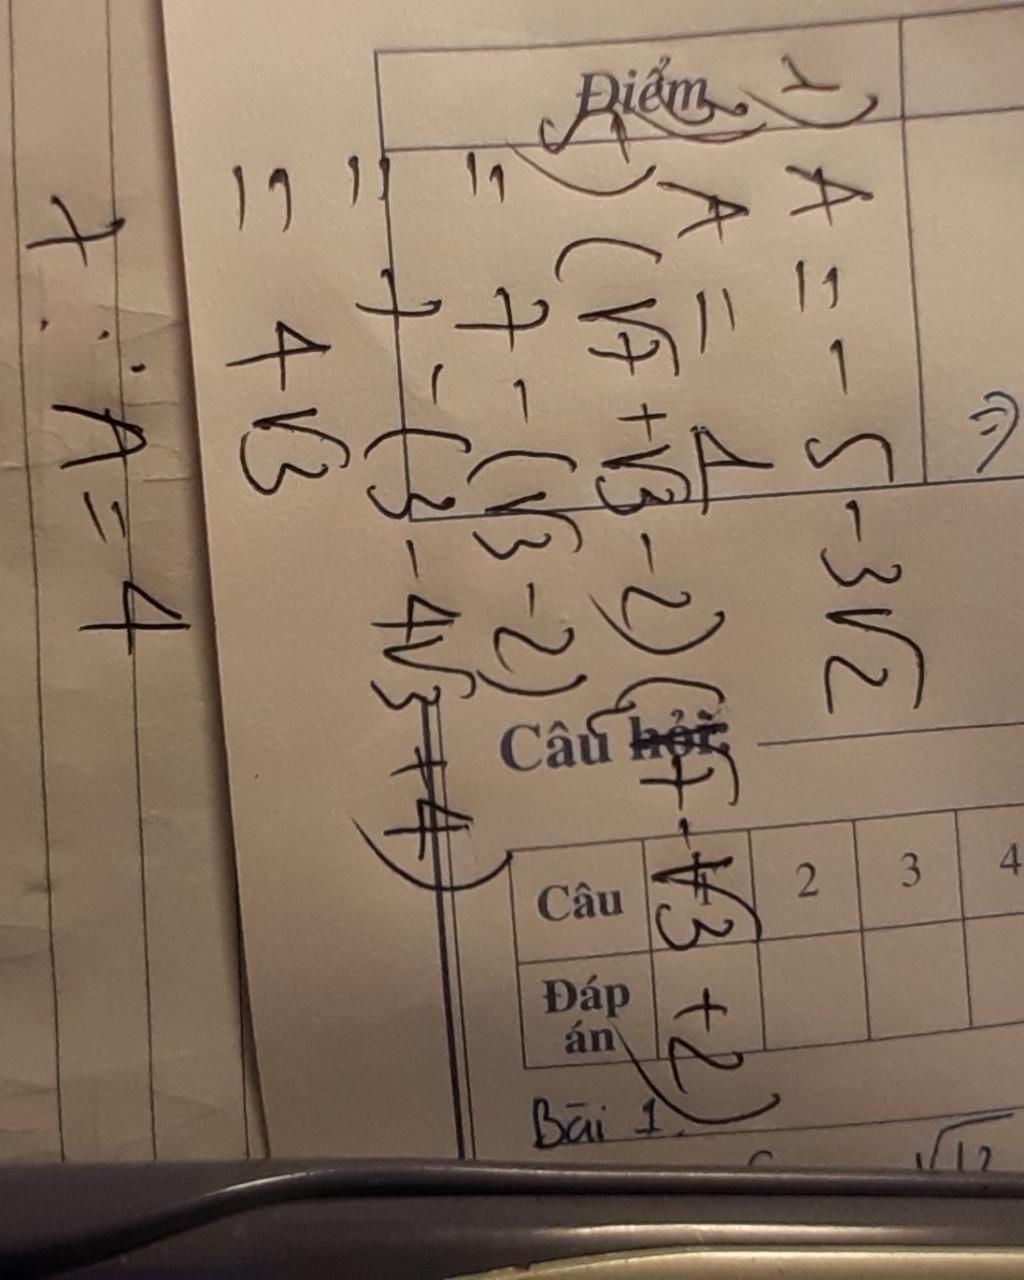 Điểm
1) A = -5 - 3√2
A = 4
(√7 + √3 - 2)(√7 - √3 + 2)
= 7 - (√3 - 2)
= 7 - (3 - 4√3 + 4)
= 4√3
7 : A = 4
Câu hỏi
Câu 2 3 4
Đáp án
Bài 1.
√12